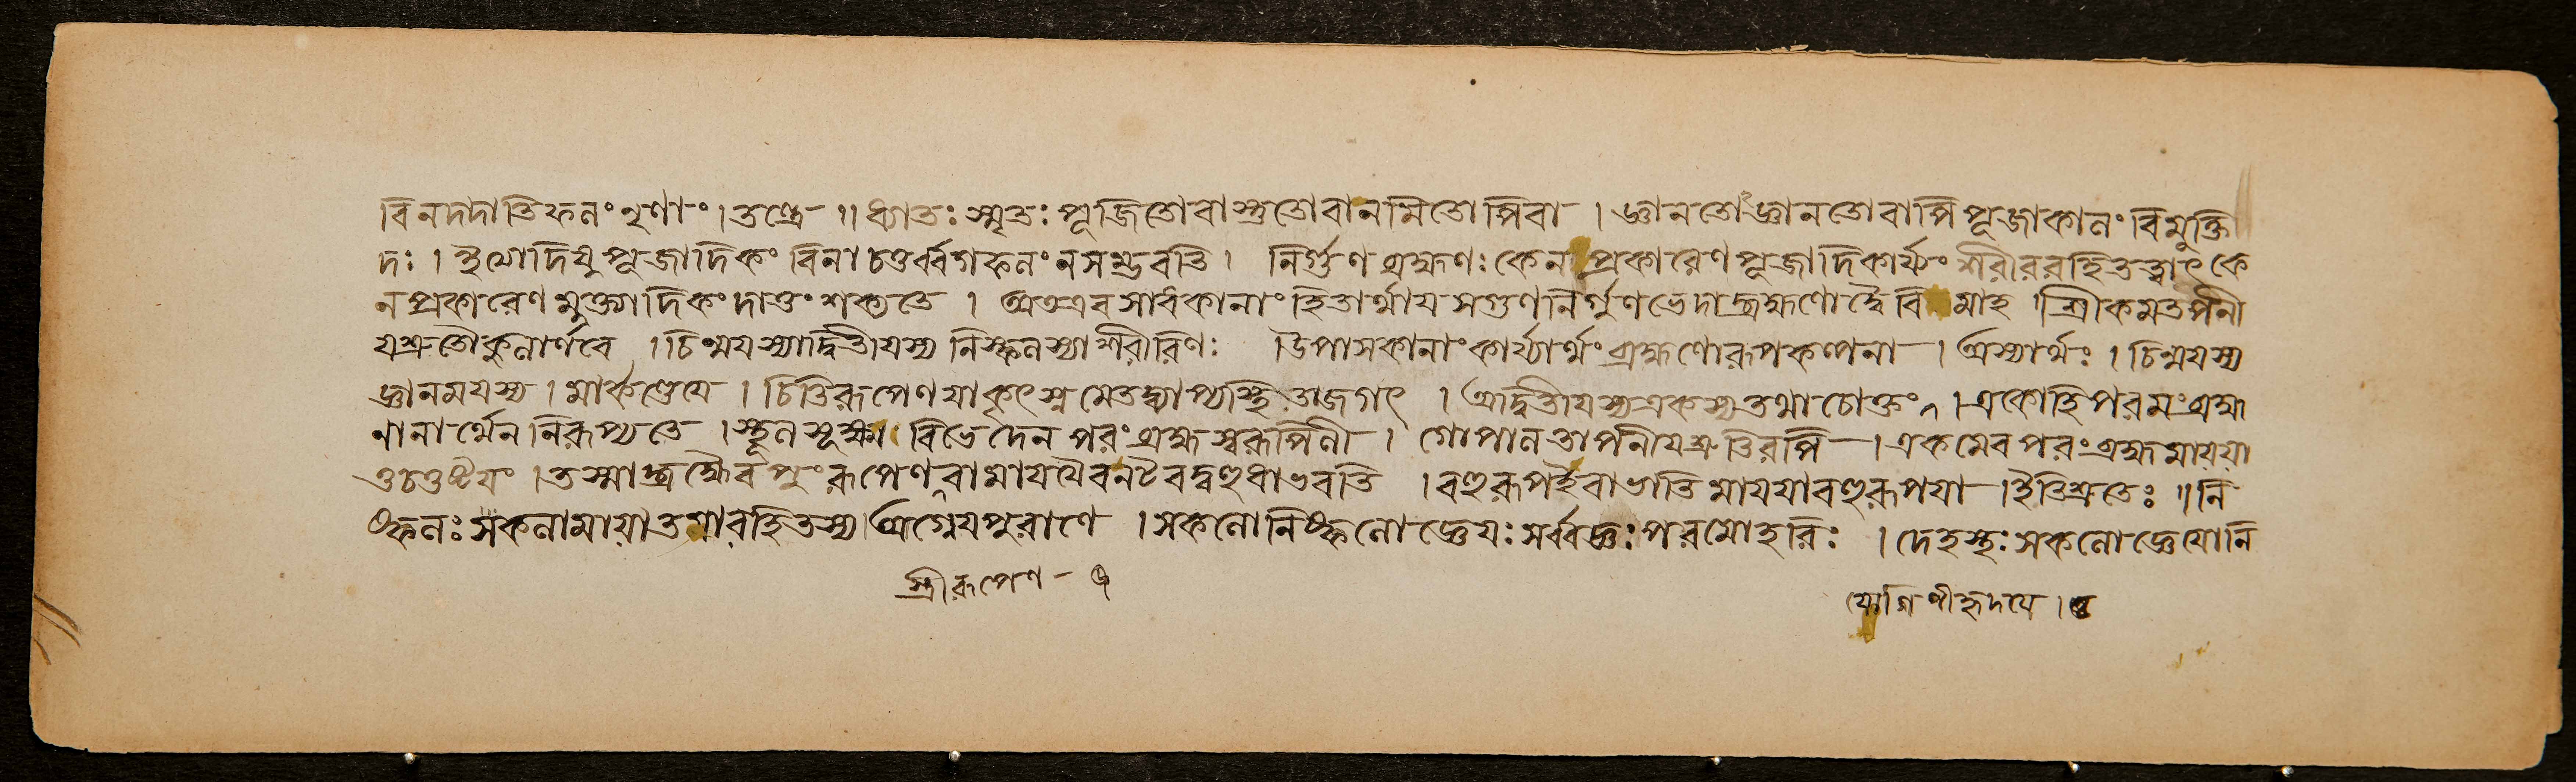 বিনদদাতিফলং নৃণাং । তন্ত্রে ॥ ধ্যাতঃ স্মৃতঃ পূজিতোবাস্তুতোবানমিতোপিবা । জ্ঞানতোঽজ্ঞানতোবাপিপূজাকানংবিমুক্তি
দঃ । পূজাদিকং বিনাচতুর্ব্বর্গফলংনসম্ভবতি । নির্গুণব্রহ্মণঃ কেনপ্রকারেণপূজাদিকার্য্যং শরীররহিতত্বাৎকে
নপ্রকারেণমুক্ত্যাদিকংদাতুংশক্যতে । অতএবসাধকানাংহিতার্থায়সগুণনির্গুণভেদাদ্ব্রহ্মণোদ্বৈবি মাহ । শ্রীরামতাপনী
যশ্রুতৌকুলার্ণবে ॥ চিন্ময়স্যাদ্বিতীয়স্য নিস্ফলস্যাশরীরিণঃ উপাসকানাংকার্য্যার্থংব্রহ্মণোরূপকল্পনা । অস্যার্থঃ । চিন্ময়স্য
জ্ঞানময়স্য । মার্কণ্ডেয়ে । চিতিরূপেণযাকৃৎস্নমেতদ্ব্যাপ্যস্থিতাজগৎ । অদ্বিতীয়স্যএকস্যতথাচোক্তং । একোহিপরমংব্রহ্ম
নানার্থেননিরূপ্যতে । স্থূলসূক্ষ্মবিভেদেনপরংব্রহ্মস্বরূপিণী । গোপালতাপনীয়শ্রুতিরপি । একমেবপরংব্রহ্মমায়য়া
তুচতুষ্টয়ং । তস্মাদ্ব্রহ্মৈবপুংরূপেণবামায়য়ৈবনটবদ্বহুধাভবতি । বহুরূপইবাভাতিমায়য়াবহুরূপয়া । ইতিশ্রুতেঃ ॥ নি
ষ্ফলঃ সকলামায়াতয়ারহিতস্য । আগ্নেয়পুরাণে । সকলোনিষ্ফলোজ্ঞেয়ঃ সর্ব্বজ্ঞঃ পরমোহরিঃ । দেহস্থঃ সকলোজ্ঞেয়োনি
স্ত্রীরূপেণ - ৭
যোগিণীহৃদয়ে । ৪